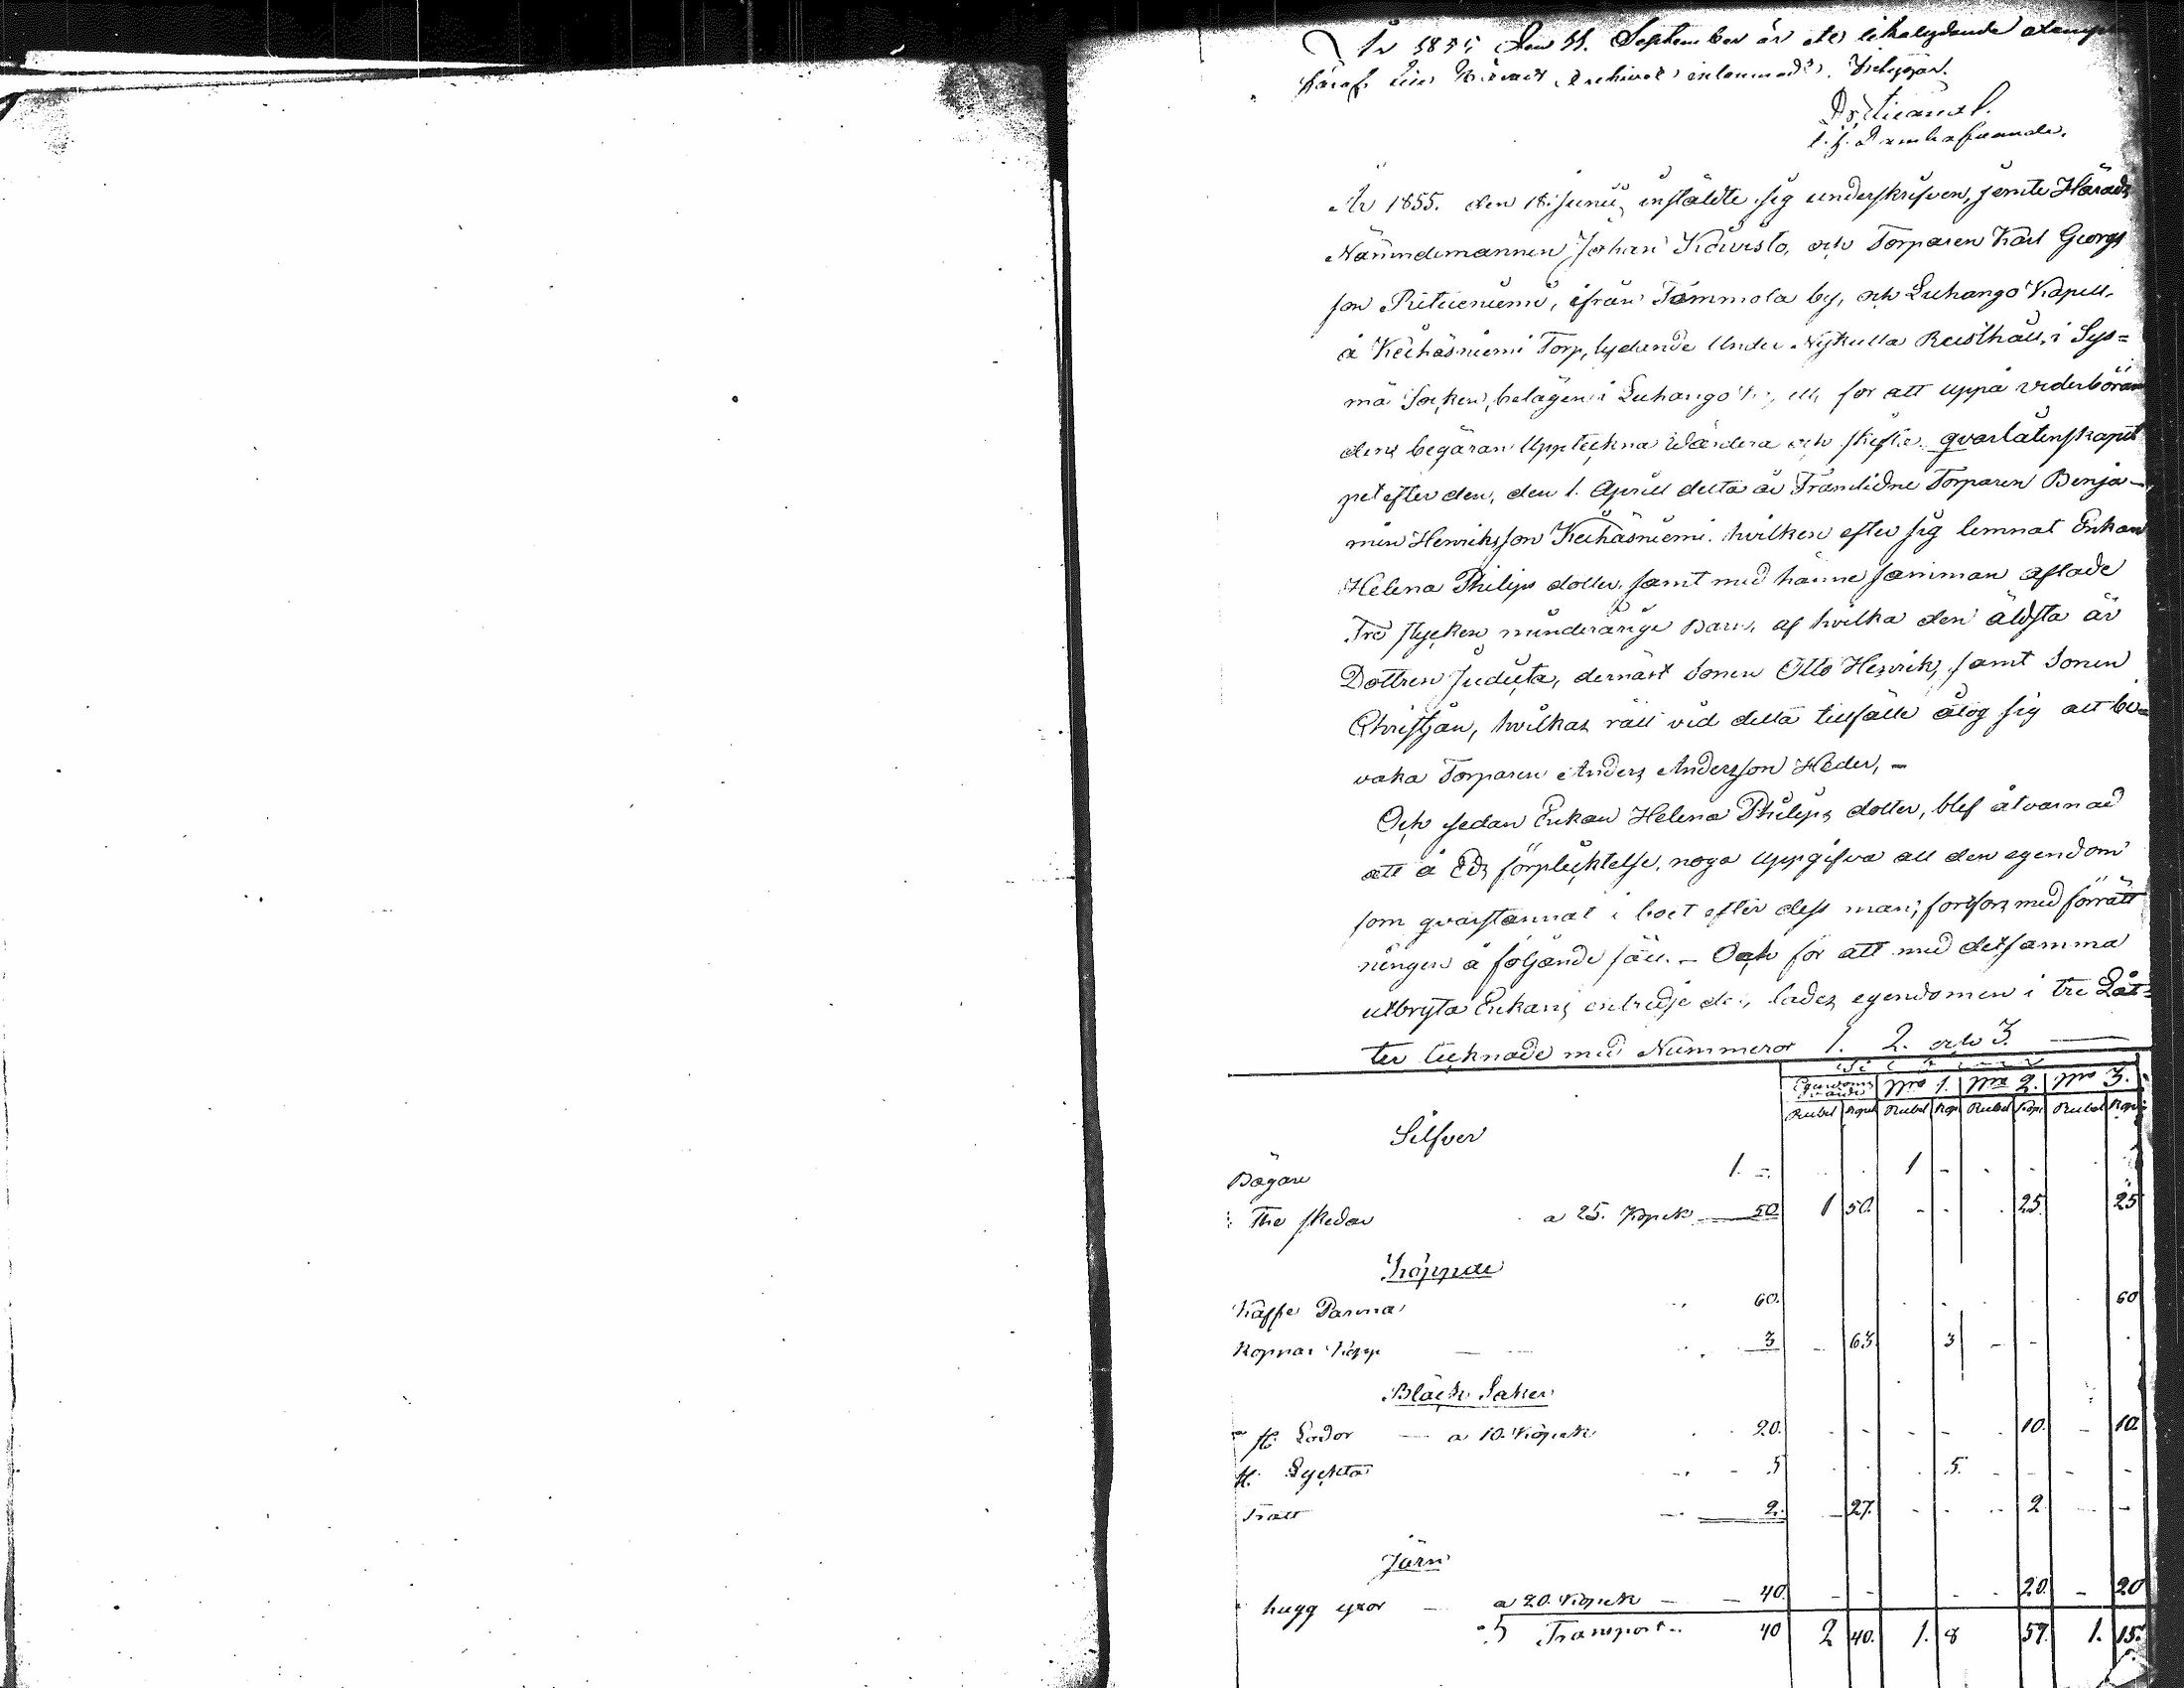 År 1855 den 11. September är ett likalydande
häraf till Härads Archivet inlemnadt. Intygar.
t. f. Domhafvande.
År 1855. den 18 Junii, instälde sig underskrifven, jemte Härads
Nämndemannen Johan Koivisto, och Torparen Karl Georgs
son ifrån Tammola by, och Luhango Kapell,
å Keihäsniemi Torp, lydande Under Nykulla Rusthåll, i Sys=
mä Socken, belägen i Luhango för att uppå vederböran
dens begäran Uppteckna Wärdera och skifta qvarlåtenskapet
pet efter den, den 1. Aprill detta år Framlidne Torparen Benja-
min Henriksson Keihäsniemi. hvilken efter sig lemnat Enkan
Helena Philips dotter, samt med hänne samman aflade
Tre stycken minderårige Barn, af hvilka den äldsta är
Dottren Judita, dernäst Sonen Otto Henrik, samt Sonen
Christjan, hvilkas rätt vid detta tillfälle åtog sig att be=
vaka Torparen Anders Andersson Heder, -
Och sedan Enkan Helena Philips dotter, blef åtvarnad
att å Eds förplicktelse, noga Uppgifva all den egendom
som qvarstannat i boet efter dess man; fortfors med förrätt
ningen å följande sätt. - Och för att med detsamma
utbryta Enkans entredje del, lades egendomen i tre Låt=
ter tecknade med Nummeror 1. 2. och 3.
Egendoms värde Nro 1. Nro 2. Nro 3.
Rubel Kopek Rubel Kop Rubel Kop. Rubel Kopek
Silfver
Bägare 1. -. 1 -
The skedar a 25. Kopek 50 1 50. 25. 25
Koppar
Kaffe Panna 60. 60
Koppar Kopp 3 - 63. 3
Bläck Saker
st: Lodor a 10. Kopek 20. 10. 10.
st. Lyckta 5 5.
Tratt 2. 27. 2
Järn
hugg yxor a 20. Kopek 40. 20. 20
Transport.. 40 2 40. 1. 8 57. 1. 15.